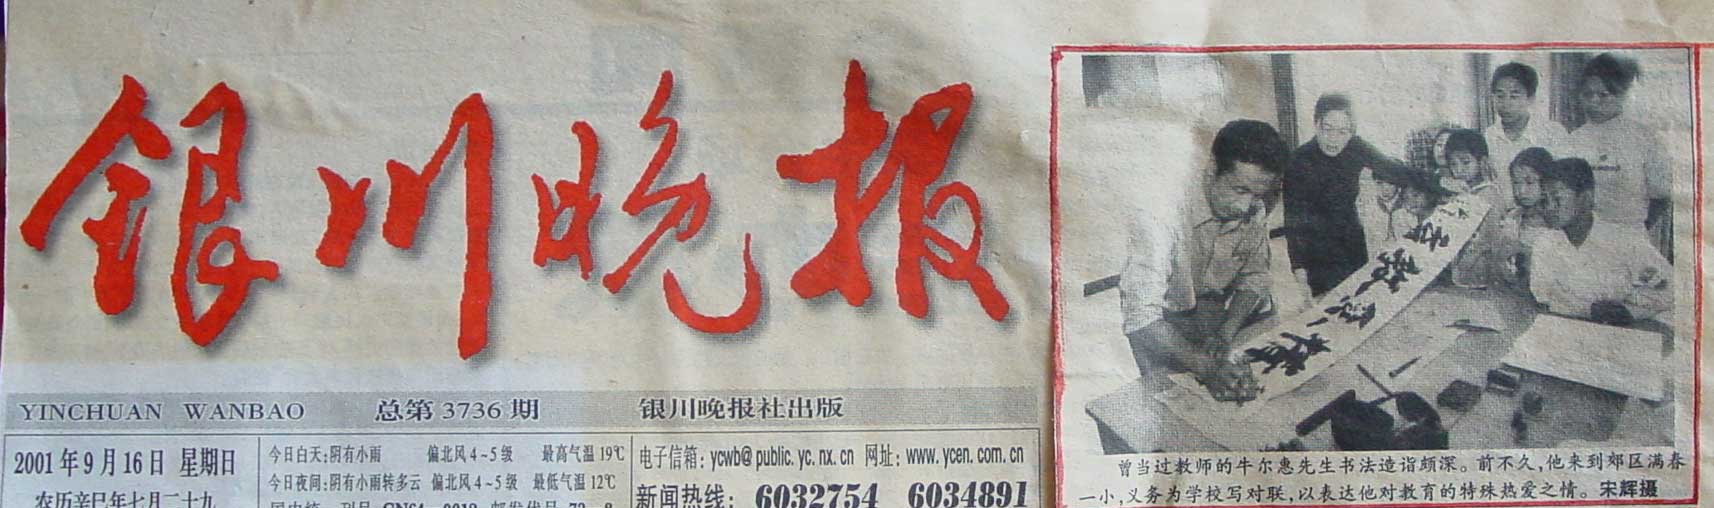 银川晚报
YINCHUAN WANBAO 总第3736期 银川晚报社出版
2001年9月16日 星期日
农历辛巳年七月二十九
今日白天:阴有小雨 偏北风4~5级 最高气温19℃
今日夜间:阴有小雨转多云 偏北风4~5级 最低气温12℃
电子信箱:ycwb@public.yc.nx.cn 网址:www.ycen.com.cn
新闻热线: 6032754 6034891
曾当过教师的牛尔惠先生书法造诣颇深。前不久,他来到郊区满春
一小,义务为学校写对联,以表达他对教育的特殊热爱之情。宋辉摄